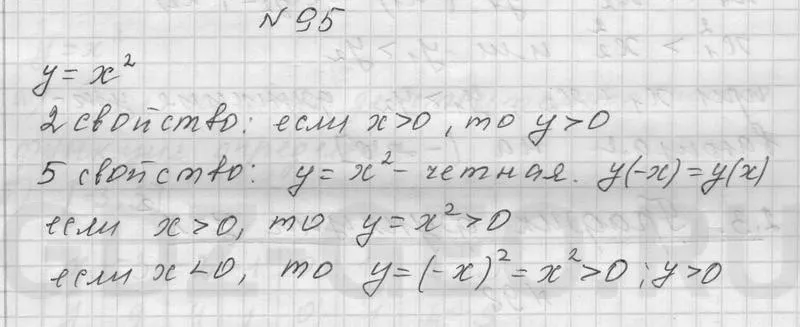 № 95
y = x²
2 свойство: если x>0, то y>0
5 свойство: y = x² - четная. y(-x) = y(x)
если x>0, то y = x² > 0
если x<0, то y = (-x)² = x² > 0; y>0